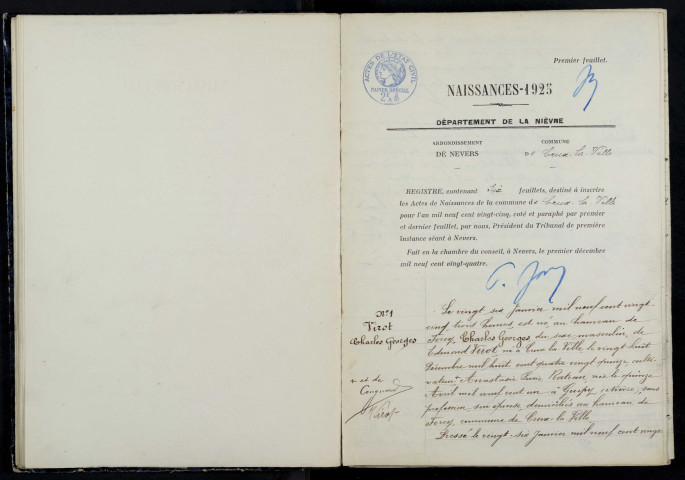 Premier feuillet.
ACTES DE L'ETAT CIVIL
PAPIER SPECIAL
NAISSANCES-1925
DÉPARTEMENT DE LA NIÈVRE
ARRONDISSEMENT
DE NEVERS
COMMUNE
DE Crux-la-Ville
REGISTRE, contenant feuillets, destiné à inscrire
les Actes de Naissances de la commune de Crux-la-Ville
pour l'an mil neuf cent vingt-cinq, coté et paraphé par premier
et dernier feuillet, par nous, Président du Tribunal de première
instance séant à Nevers.
Fait en la chambre du conseil, à Nevers, le premier décembre
mil neuf cent vingt-quatre.
N° 1
Virot
Charles Georges
Le vingt six Janvier mil neuf cent vingt
cinq trois heures, est né au hameau de
Forcy, Charles Georges du sexe masculin, de
Edmond Virot né à Crux la Ville le vingt huit
Décembre mil huit cent quatre vingt quinze culti-
vateur Anastasie Rateau née le quinze
Avril mil neuf cent un à Guipy, sans
profession son épouse, domiciliés au hameau de
Forcy, commune de Crux-la-Ville
Dressé le vingt-six Janvier mil neuf cent vingt